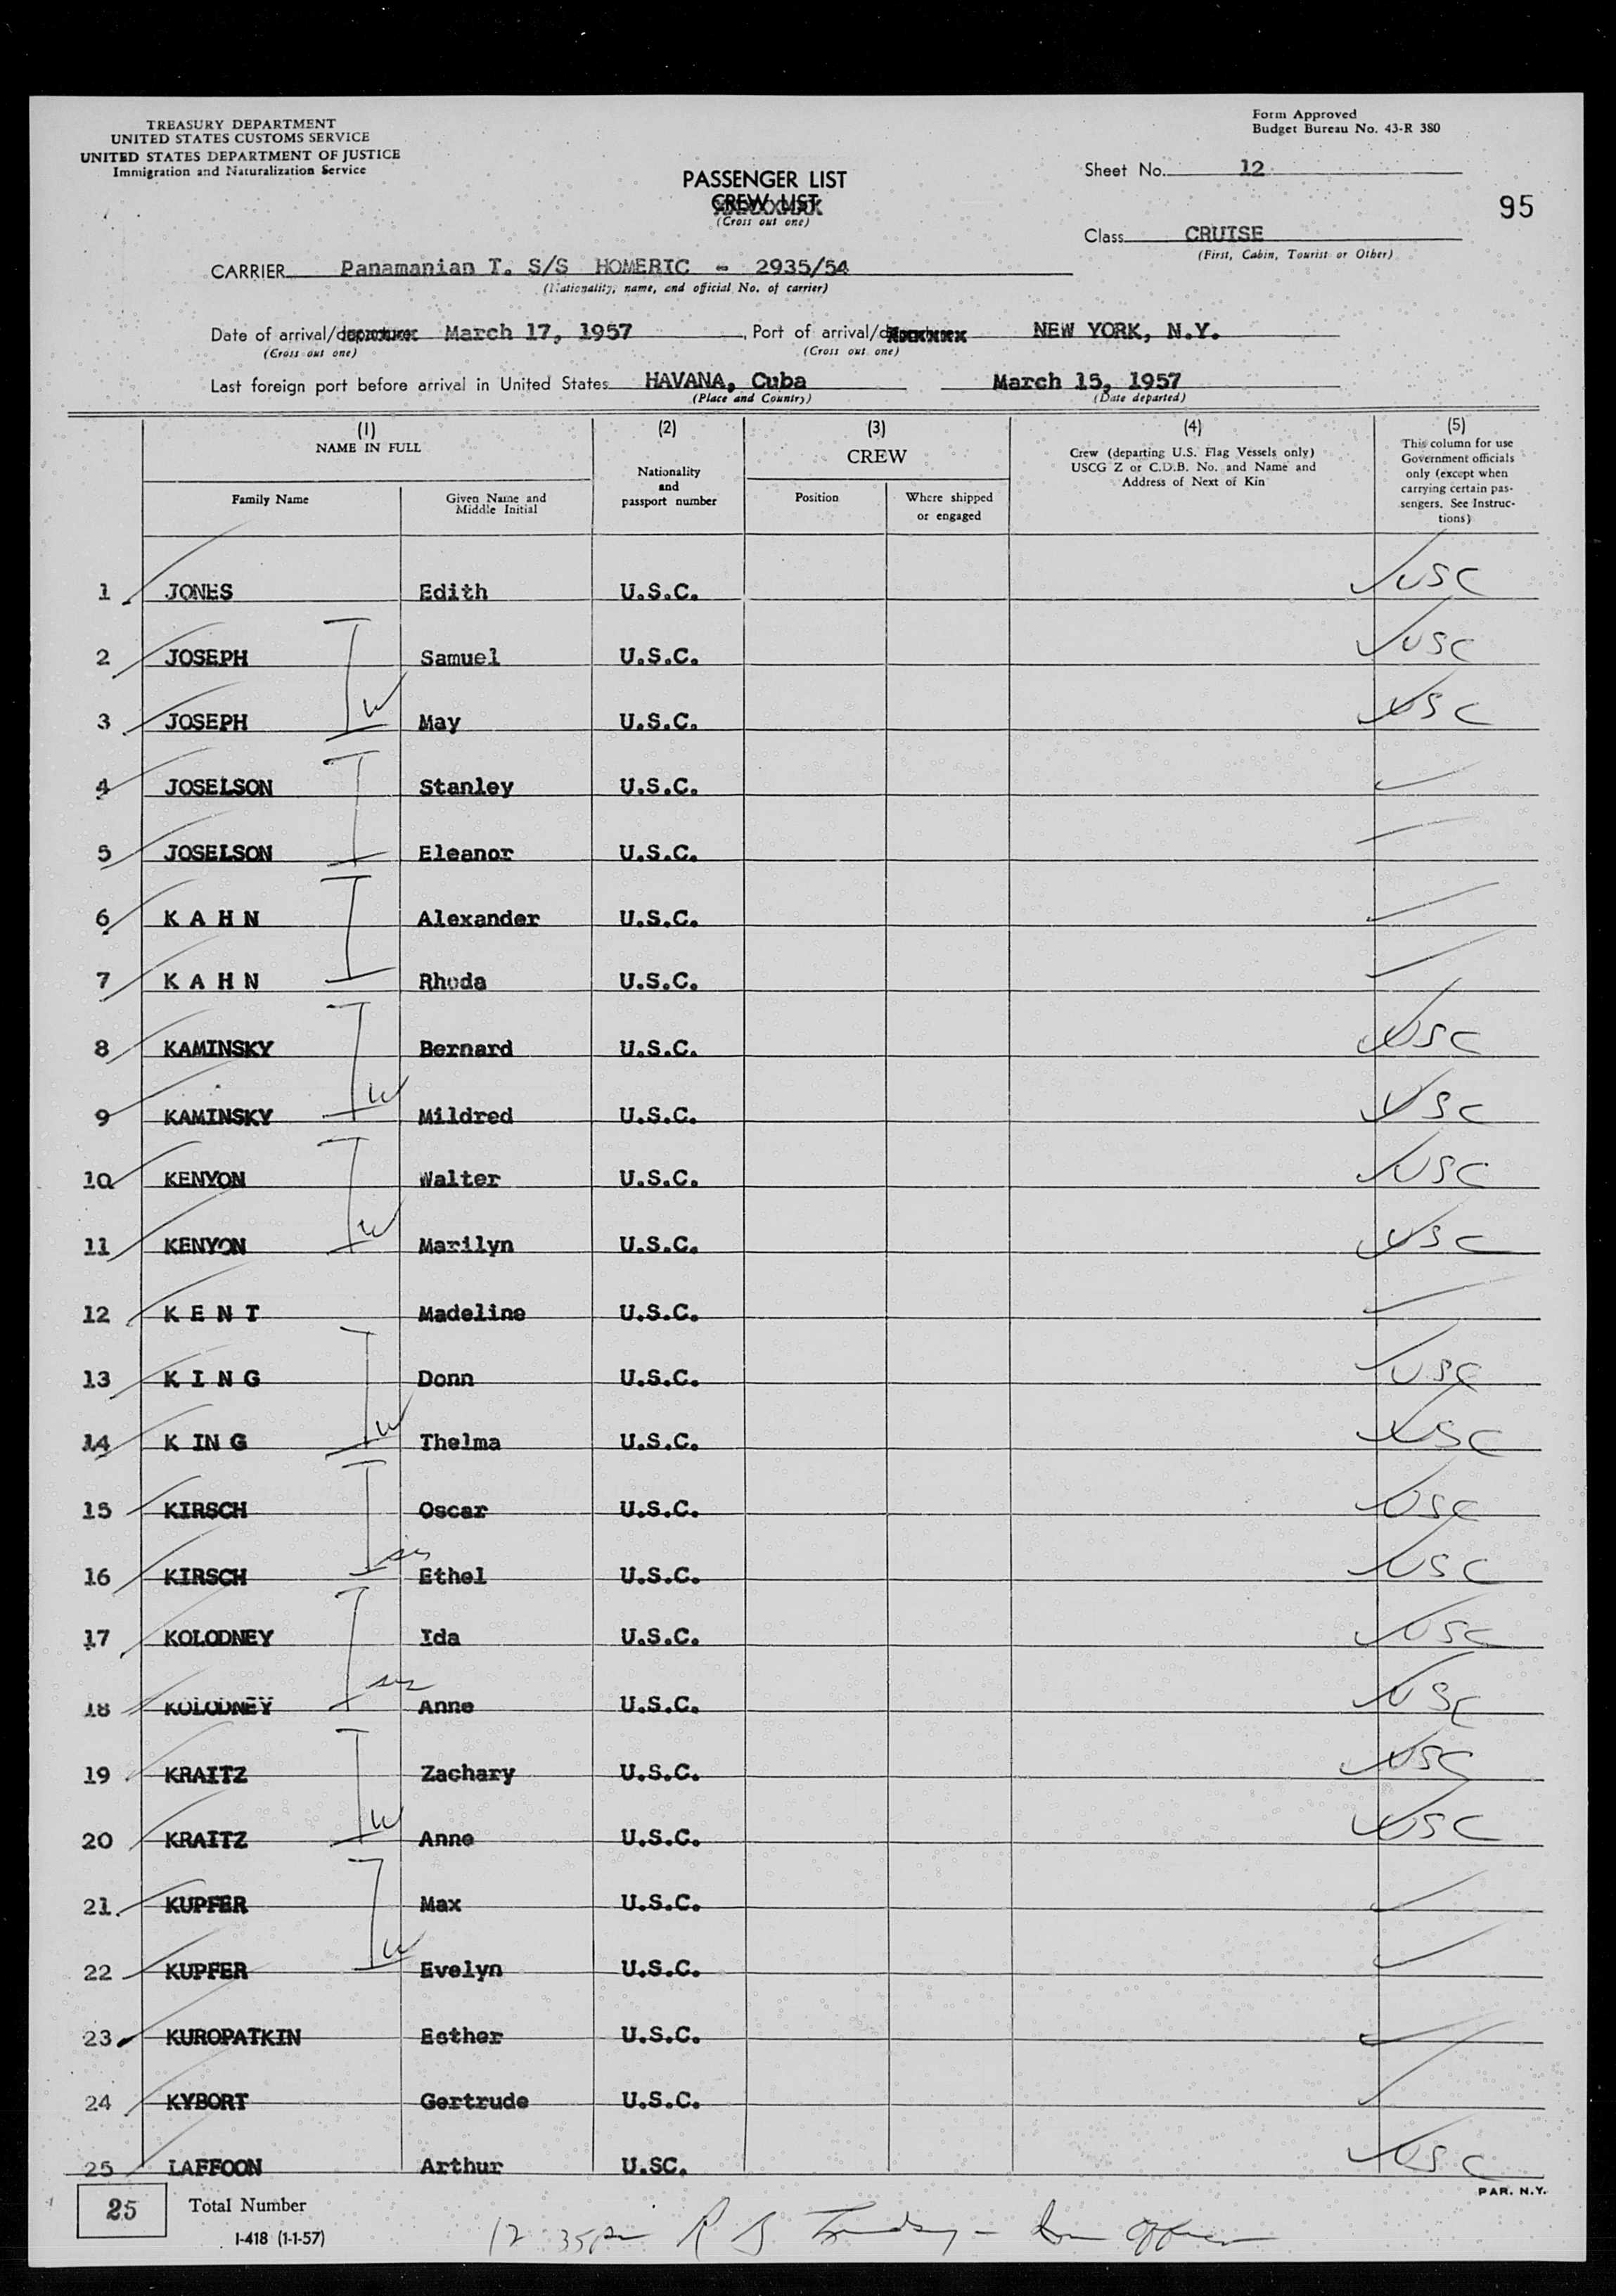 TREASURY DEPARTMENT
UNITED STATES CUSTOMS SERVICE
UNITED STATES DEPARTMENT OF JUSTICE
Immigration and Naturalization Service
Form Approved
Budget Bureau No. 43-R 380
PASSENGER LIST
CREW LIST
(Cross out one)
Sheet No. 12
95
Class CRUISE
(First, Cabin, Tourist or Other)
CARRIER Panamanian T. S/S HOMERIC - 2935/54
(Nationality, name, and official No. of carrier)
Date of arrival/departure March 17, 1957, Port of arrival/d NEW YORK, N.Y.
(Cross out one) (Cross out one)
Last foreign port before arrival in United States HAVANA, Cuba March 15, 1957
(Place and Country) (Date departed)
(1) (2) (3) (4) (5)
NAME IN FULL Nationality and passport number CREW Crew (departing U.S. Flag Vessels only) USCG Z or C.D.B. No. and Name and Address of Next of Kin This column for use Government officials only (except when carrying certain passengers. See Instructions)
Family Name Given Name and Middle Initial Position Where shipped or engaged
1 JONES Edith U.S.C. USC
2 JOSEPH Samuel U.S.C. USC
3 JOSEPH W May U.S.C. USC
4 JOSELSON Stanley U.S.C.
5 JOSELSON Eleanor U.S.C.
6 K A H N Alexander U.S.C.
7 K A H N Rhoda U.S.C.
8 KAMINSKY Bernard U.S.C. USC
9 KAMINSKY W Mildred U.S.C. USC
10 KENYON Walter U.S.C. USC
11 KENYON W Marilyn U.S.C. USC
12 K E N T Madeline U.S.C.
13 K I N G Donn U.S.C. USC
14 K IN G W Thelma U.S.C. USC
15 KIRSCH Oscar U.S.C. USC
16 KIRSCH Ethel U.S.C. USC
17 KOLODNEY Ida U.S.C. USC
18 KOLODNEY Anne U.S.C. USC
19 KRAITZ Zachary U.S.C. USC
20 KRAITZ W Anne U.S.C. USC
21 KUPFER Max U.S.C.
22 KUPFER W Evelyn U.S.C.
23 KUROPATKIN Esther U.S.C.
24 KYBORT Gertrude U.S.C.
25 LAFFOON Arthur U.SC. USC
PAR. N.Y.
25 Total Number
I-418 (1-1-57)
12 35pm R